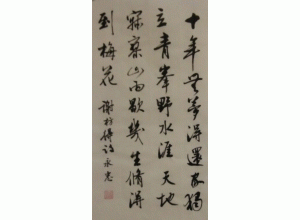 十年無夢得還家獨
立青峯野水涯天地
寂寥山雨歇幾生脩得
到梅花 謝枋得詩 永忠